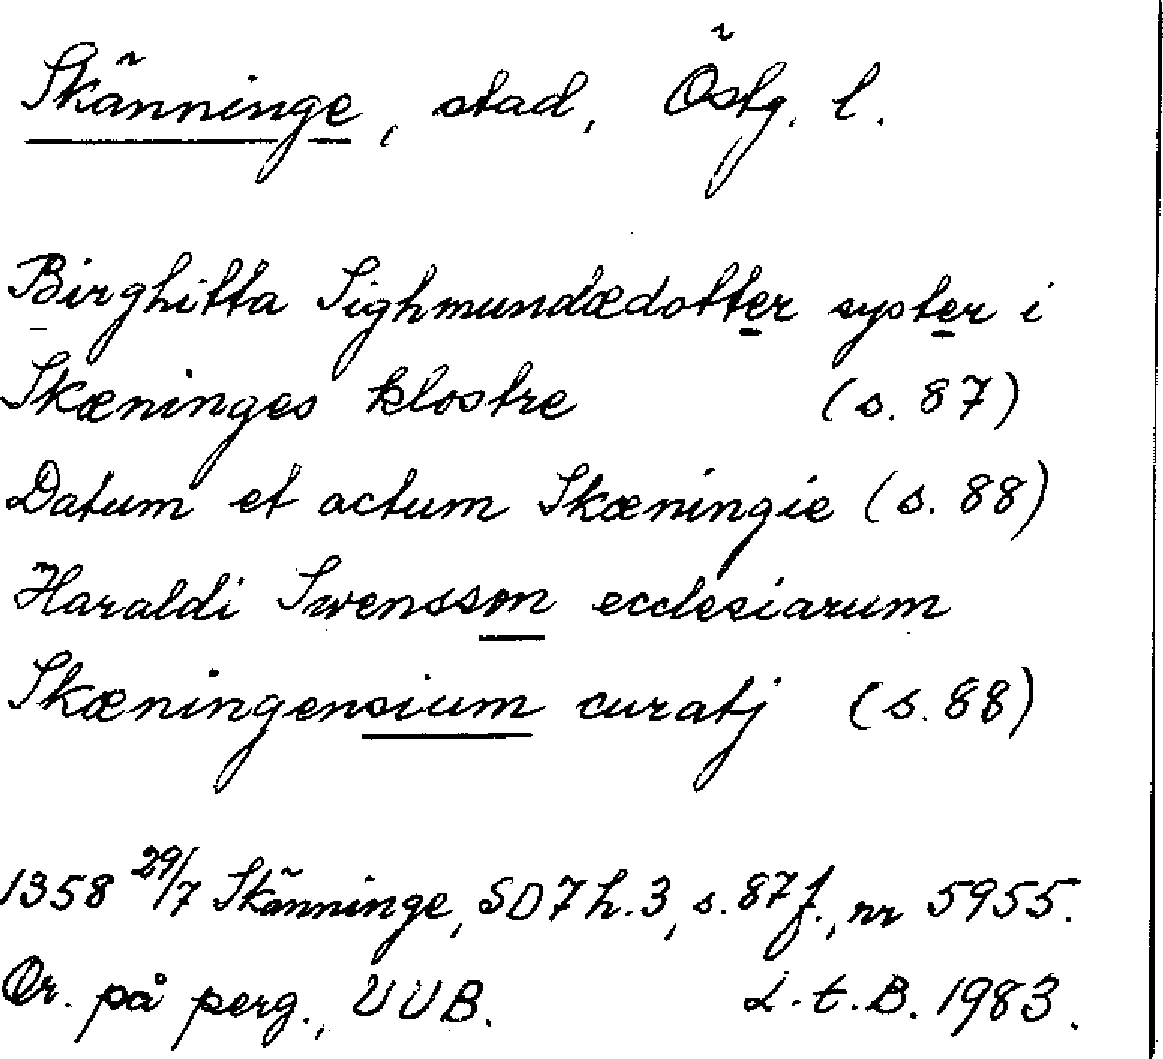 Skänninge, stad, Östg. l.
Birghitta Sighmundædotter syster i
Skæninges klostre (s. 87)
Datum et actum Skæningie (s. 88)
Haraldi Swensson ecclesiarum
Skæningensium curatj (s. 88)
1358 29/7 Skänninge, SD 7 h. 3, s. 87 f., nr 5955.
Or. på perg., UUB. L. t. B. 1983.